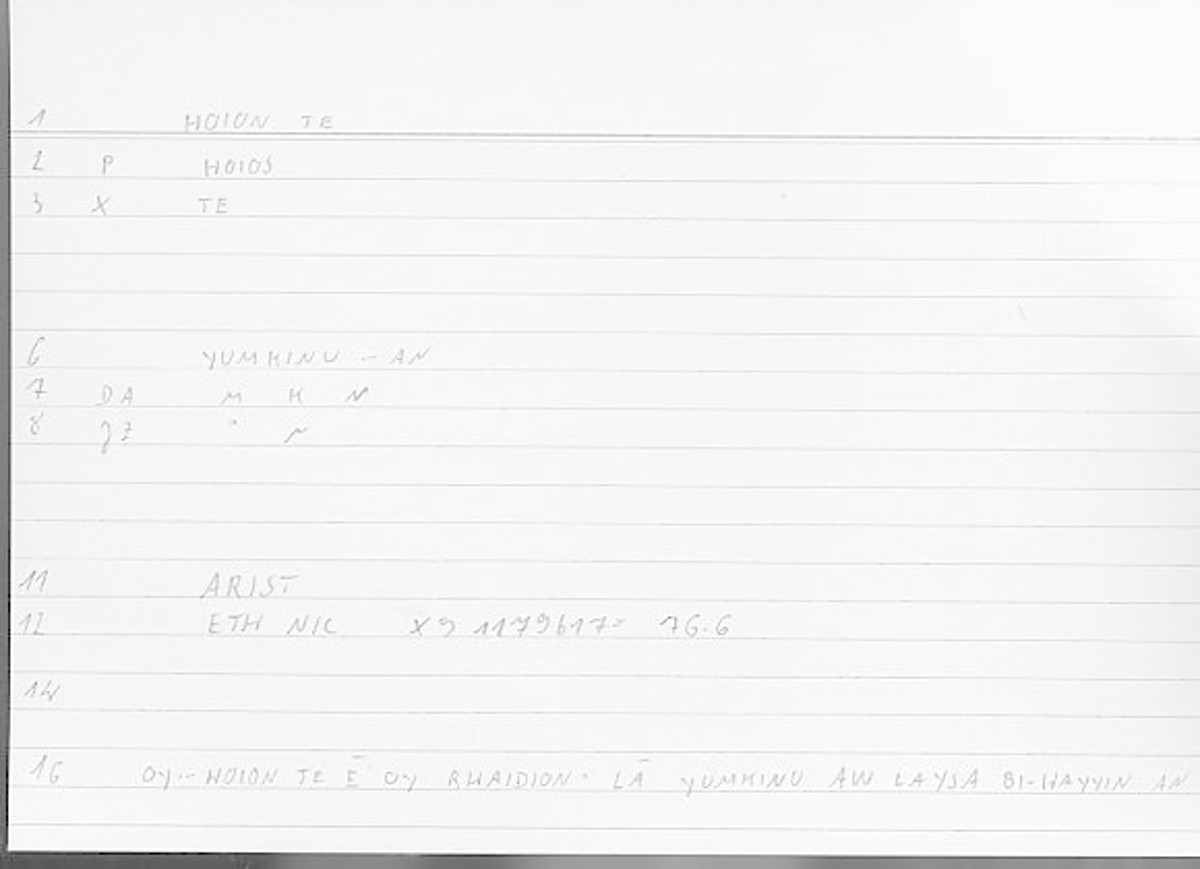 1 HOION TE
2 P HOIOS
3 X TE
6 YUMKINU .- AN
7 DA M K N
8 ZZ " N
11 ARIST
12 ETH NIC X 9 1179b17= 76.6
14
16 OY.- HOION TE Ē OY RHAIDION· LĀ YUMKINU AW LAYSA BI-HAYYIN AN